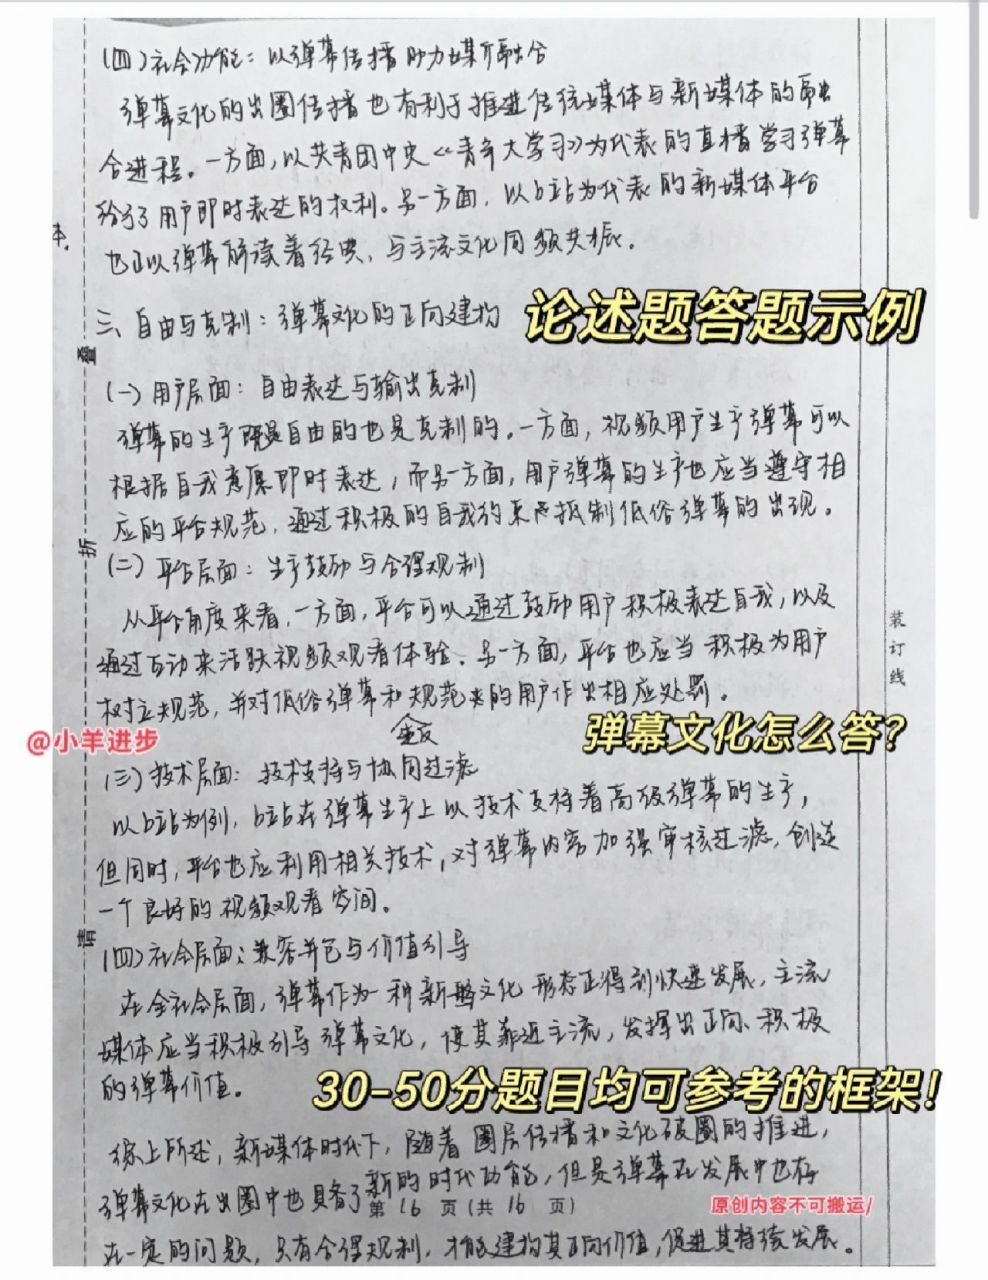 (四)社会功能：以弹幕传播助力媒介融合
弹幕文化的出圈传播也有利于推进传统媒体与新媒体的融
合进程。一方面,以共青团中央《青年大学习》为代表的直播学习弹幕
给予了用户即时表达的权利。另一方面，以b站为代表的新媒体平台
本.
也正以弹幕解读着经典,与主流文化同频共振。
三、自由与克制：弹幕文化的正向建构
论述题答题示例
叠
(一)用户层面：自由表达与输出克制
弹幕的生产既是自由的也是克制的。一方面，视频用户生产弹幕可以
根据自我意愿即时表达，而另一方面,用户弹幕的生产也应当遵守相
应的平台规范，通过积极的自我约束抵制低俗弹幕的出现。
折
(二)平台层面：生产鼓励与合理规制
从平台角度来看，一方面,平台可以通过鼓励用户积极表达自我,以及
装订线
通过互动来活跃视频观看体验。另一方面,平台也应当积极为用户
树立规范,并对低俗弹幕和规范的用户作出相应处罚。
弹幕文化怎么答?
@小羊进步
(三)技术层面：技术支持与协同过滤
以b站为例，b站在弹幕生产上以技术支持着高级弹幕的生产，
但同时,平台也应利用相关技术,对弹幕内容加强审核过滤,创造
一个良好的视频观看空间。
请
(四)社会层面：兼容并包与价值引导
在全社会层面,弹幕作为一种新型文化形态正得到快速发展,主流
媒体应当积极引导弹幕文化，使其靠近主流,发挥出正向、积极
的弹幕价值。
30-50分题目均可参考的框架!
综上所述，新媒体时代下，随着圈层传播和文化破圈的推进，
弹幕文化在出圈中也具备了新的时代功能,但是弹幕在发展中也存
第16页(共16页)
原创内容不可搬运/
在一定的问题,只有合理规制,才能建构其正向价值,促进其持续发展。